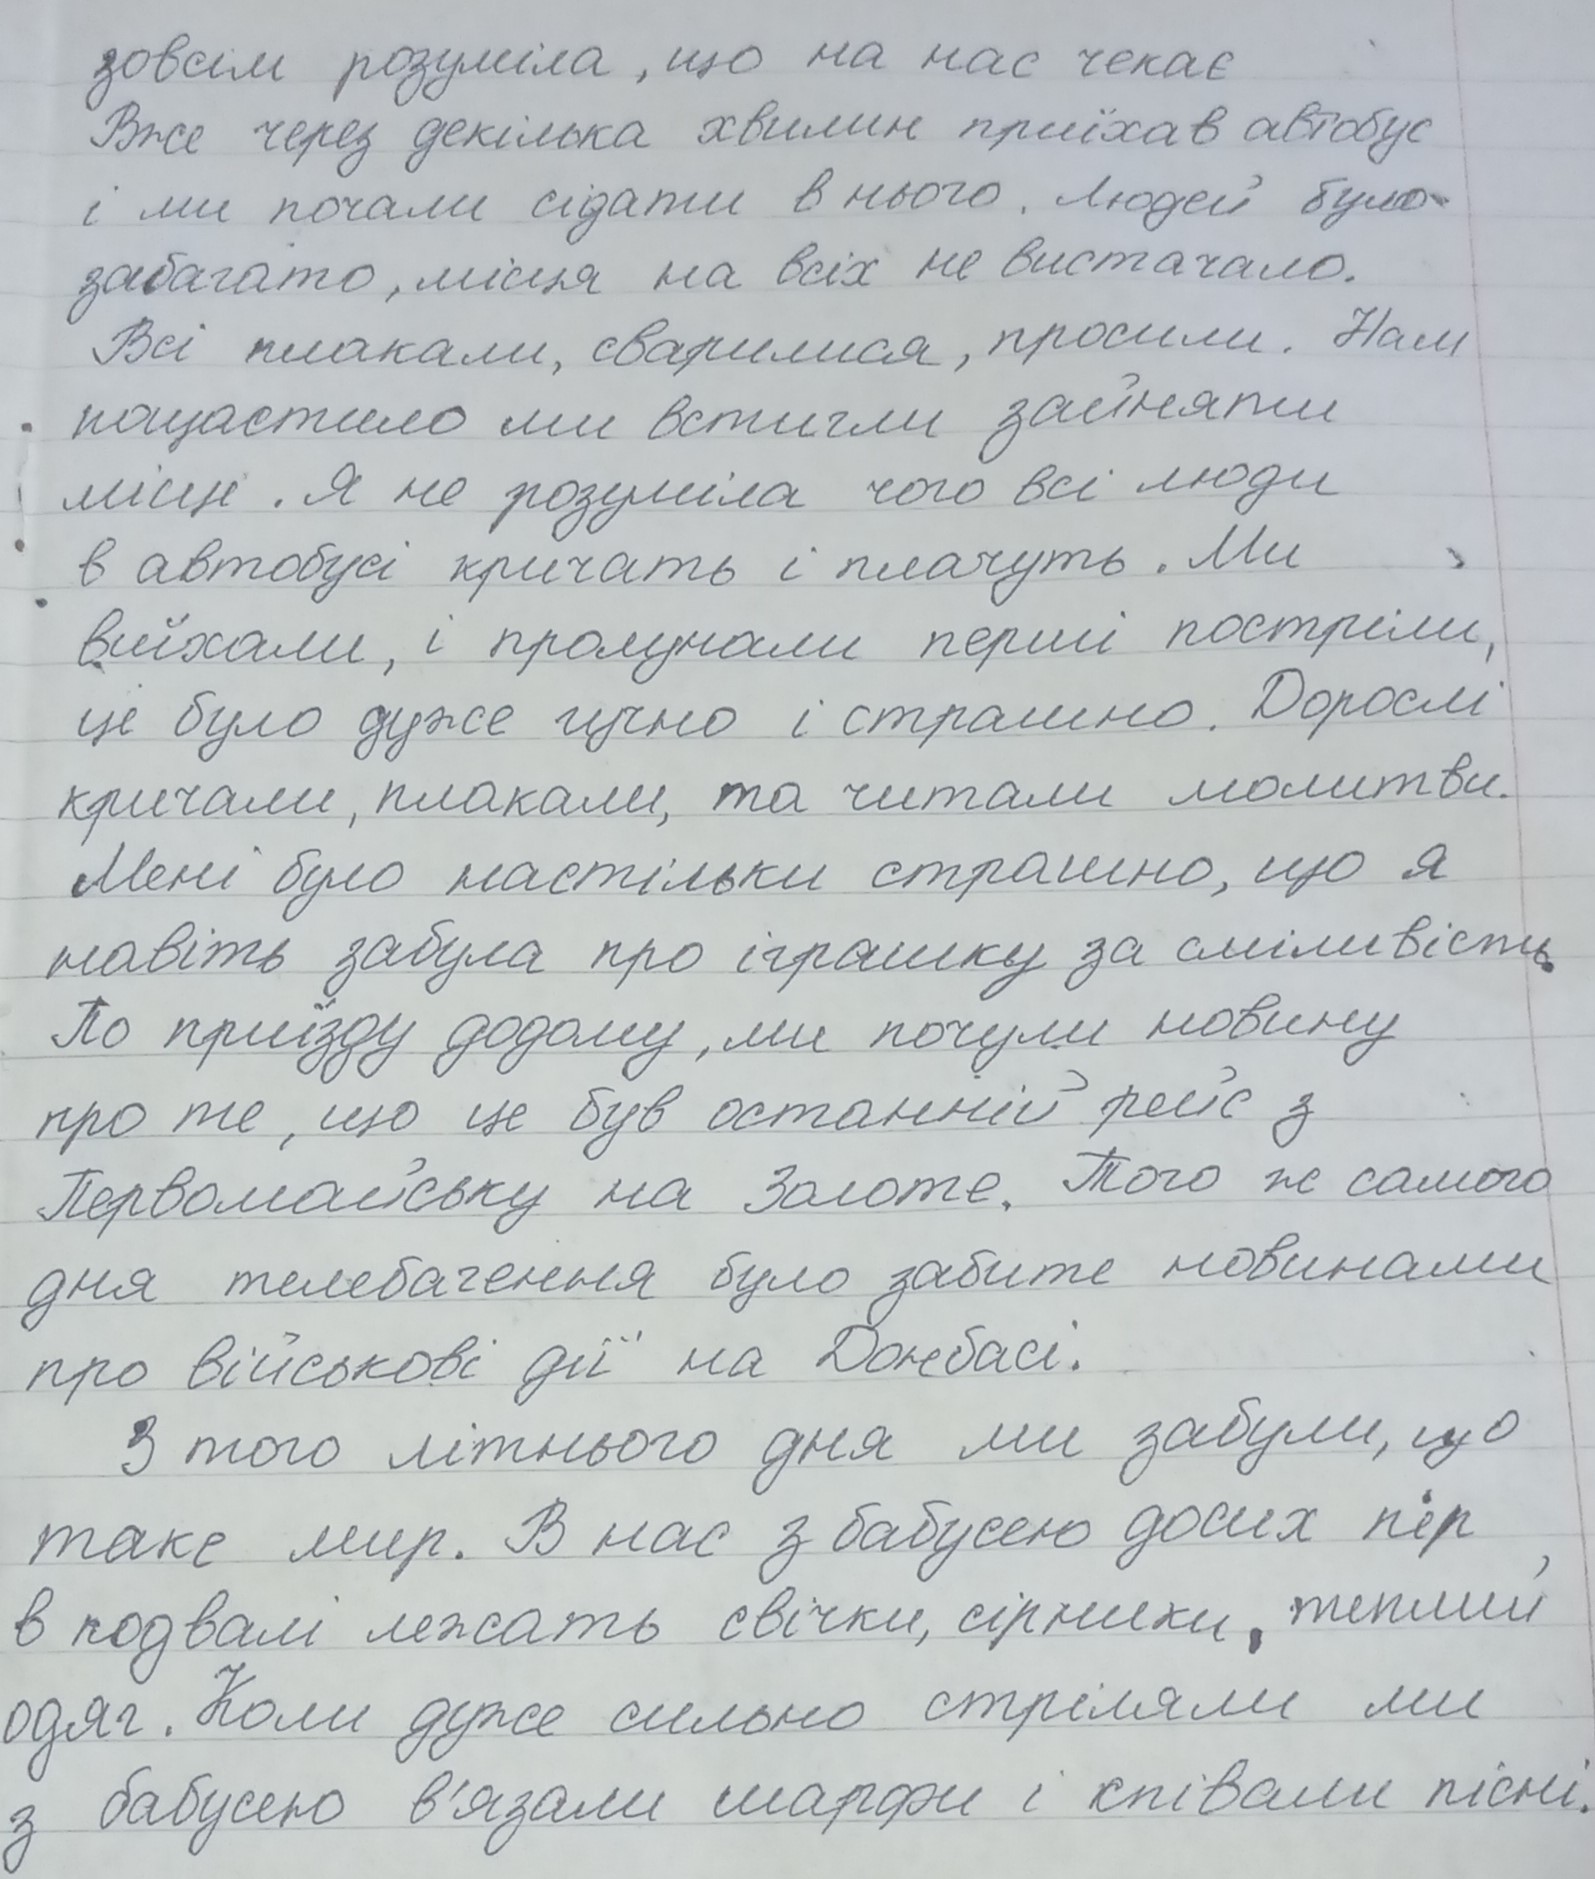 зовсім розуміла, що на нас чекає
Вже через декілька хвилин приїхав автобус
і ми почали сідати в нього. Людей було
забагато, місця на всіх не вистачало.
Всі плакали, сварилися, просили. Нам
пощастило ми встигли зайняти
місці. Я не розуміла чого всі люди
в автобусі кричать і плачуть. Ми
виїхали, і пролунали перші постріли,
це було дуже гучно і страшно. Дорослі
кричали, плакали, та читали молитви.
Мені було настільки страшно, що я
навіть забула про іграшку за сміливість.
По приїзду додому, ми почули новину
про те, що це був останній рейс з
Первомайську на Золоте. Того ж самого
дня телебачення було забите новинами
про військові дії на Донбасі.
З того літнього дня ми забули, що
таке мир. В нас з бабусею досих пір
в подвалі лежать свічки, сірники, теплий
одяг. Коли дуже сильно стріляли ми
з бабусею в'язали шарфи і співали пісні.